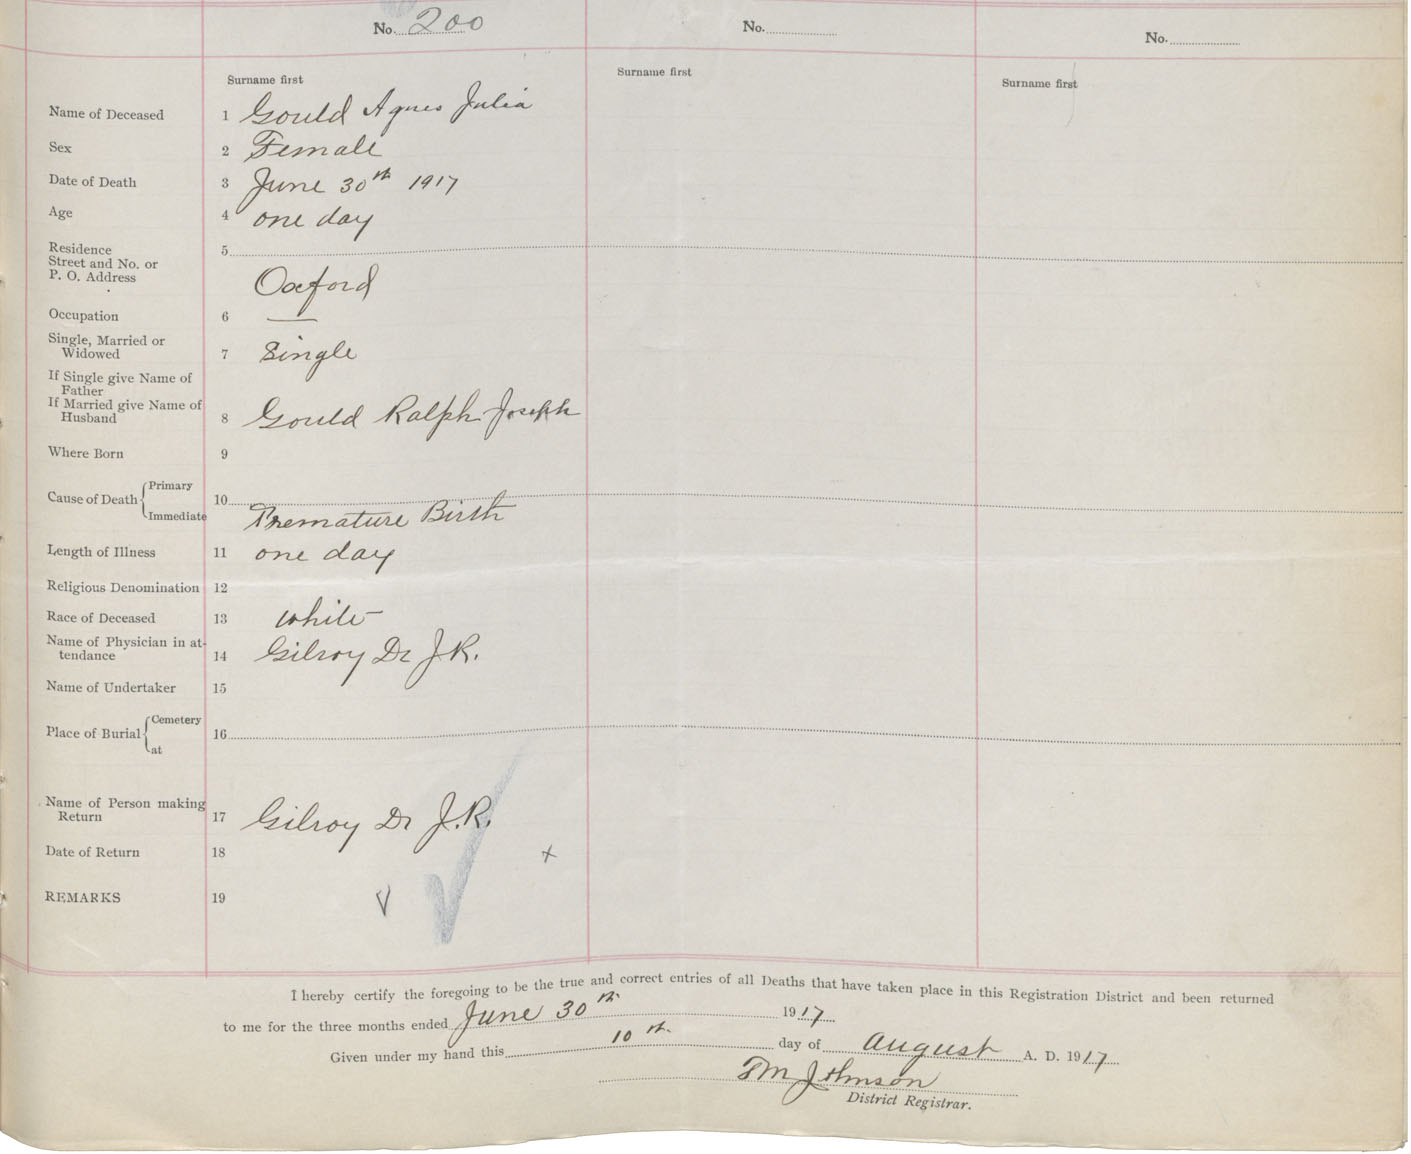 No. 200 No. No.
Surname first Surname first Surname first
Name of Deceased 1 Gould Agnes Julia
Sex 2 Female
Date of Death 3 June 30th 1917
Age 4 one day
Residence 5
Street and No. or
P. O. Address
Oxford
Occupation 6 —
Single, Married or
Widowed 7 Single
If Single give Name of
Father
If Married give Name of
Husband 8 Gould Ralph Joseph
Where Born 9
Cause of Death { Primary 10
Immediate Premature Birth
Length of Illness 11 one day
Religious Denomination 12
Race of Deceased 13 white
Name of Physician in at-
tendance 14 Gilroy Dr J.R.
Name of Undertaker 15
Place of Burial { Cemetery 16
at
Name of Person making
Return 17 Gilroy Dr J.R.
Date of Return 18
REMARKS 19
I hereby certify the foregoing to be the true and correct entries of all Deaths that have taken place in this Registration District and been returned
to me for the three months ended June 30th 1917
Given under my hand this 10th day of August A. D. 1917
Johnson
District Registrar.